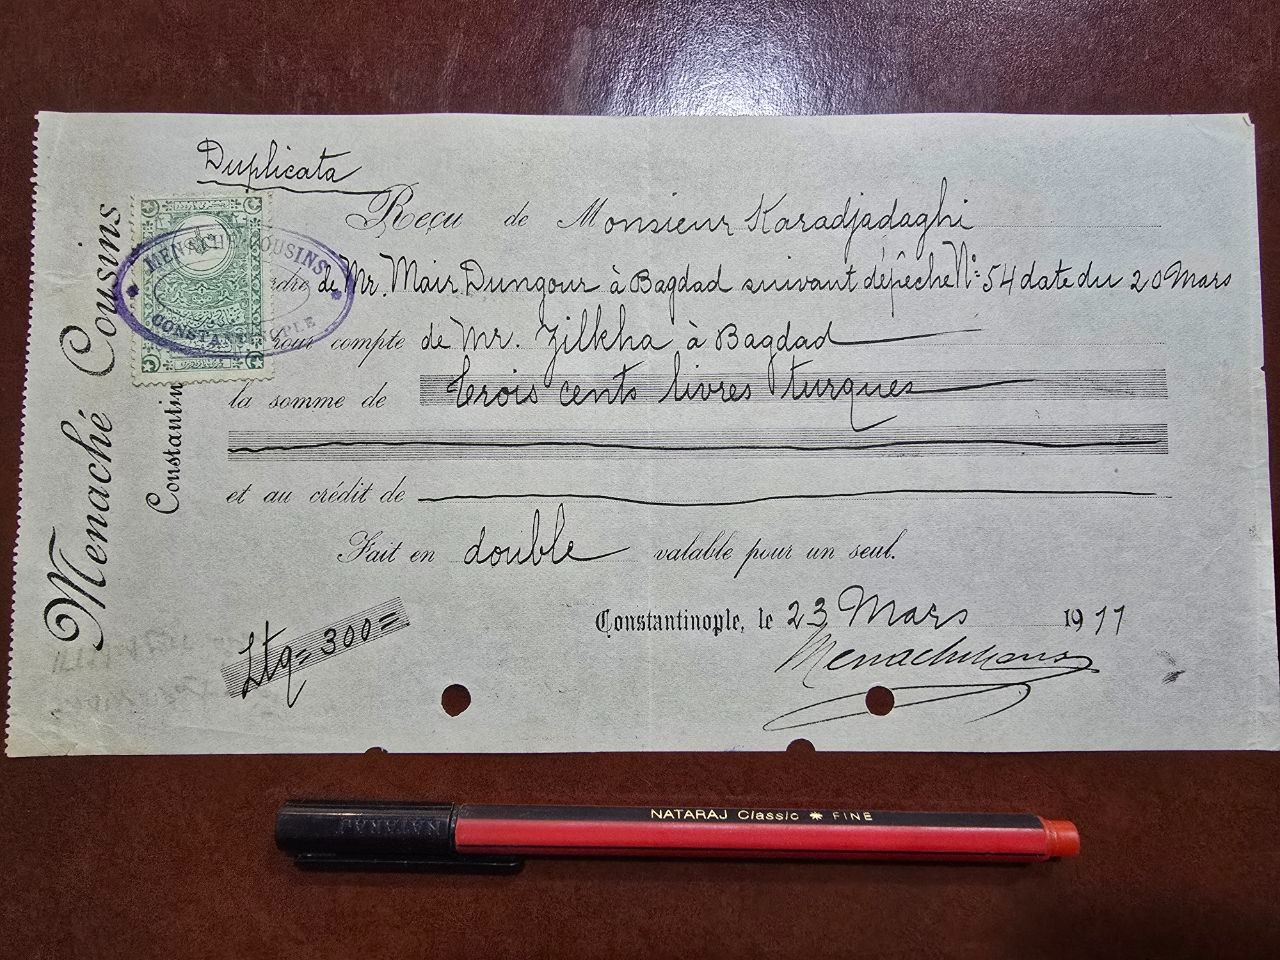 Duplicata
Reçu de Monsieur Karadjadaghi
ordre de Mr. Mair Dungour à Bagdad suivant dépêche No: 54 date du 20 Mars
Pour compte de Mr. Zilkha à Bagdad
la somme de trois cents livres turques
et au crédit de
Fait en double valable pour un seul.
Constantinople, le 23 Mars 1911
Ltq = 300 =
Menaché Cousins
Menaché Cousins
Constantin
MENACHE COUSINS
CONSTANTINOPLE
NATARAJ Classic FINE
NATARAJ